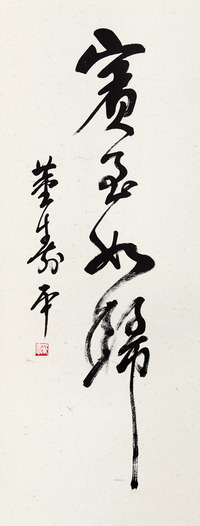 賓至如歸
董壽平